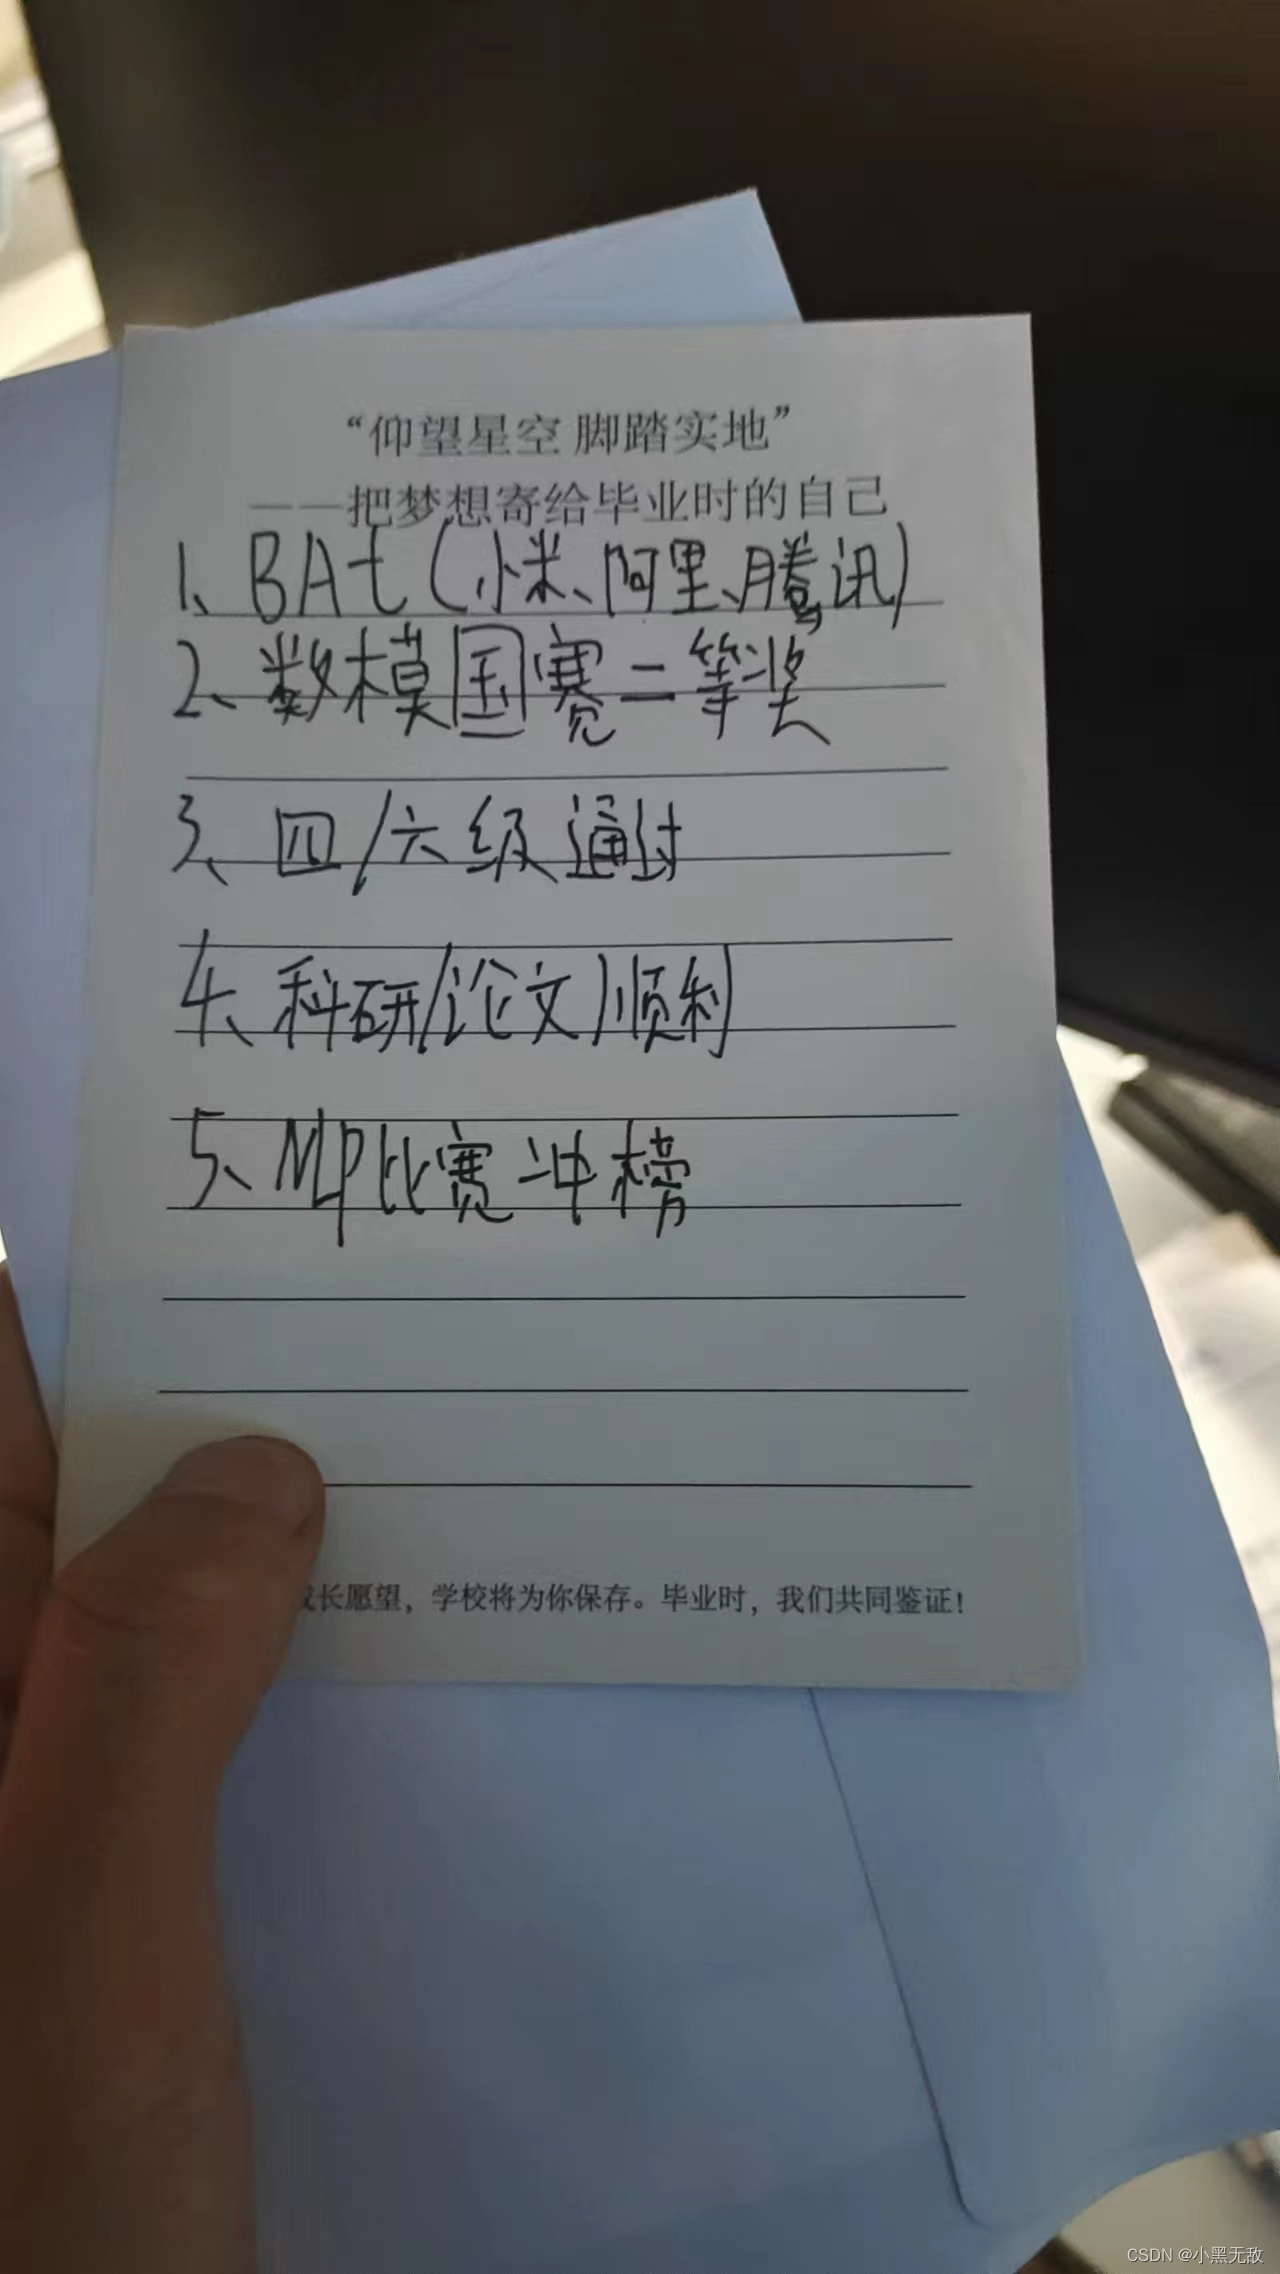 “仰望星空 脚踏实地”
——把梦想寄给毕业时的自己
1、BAt(小米、阿里、腾讯)
2、数模国赛二等奖
3、四/六级通过
4、科研/论文顺利
5、NLP比赛冲榜
成长愿望，学校将为你保存。毕业时，我们共同鉴证！
CSDN @小黑无敌